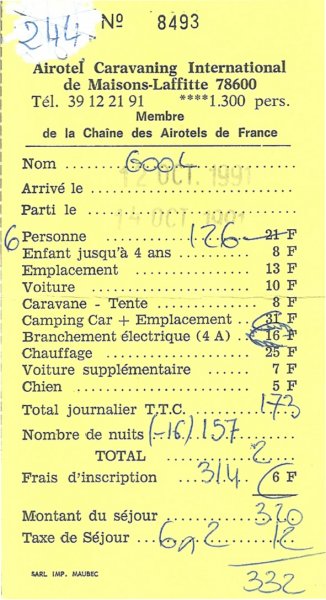 244 Nº 8493
Airotel Caravaning International
de Maisons-Laffitte 78600
Tél. 39 12 21 91 ****1.300 pers.
Membre
de la Chaîne des Airotels de France
Nom GOOL
Arrivé le 12 OCT. 1991
Parti le 14 OCT. 1991
6 Personne 126 21 F
Enfant jusqu'à 4 ans 8 F
Emplacement 13 F
Voiture 10 F
Caravane - Tente 8 F
Camping Car + Emplacement 31 F
Branchement électrique (4 A) 16 F
Chauffage 25 F
Voiture supplémentaire 7 F
Chien 5 F
Total journalier T.T.C. 173
Nombre de nuits (-16) 157
TOTAL *2
Frais d'inscription 314 6 F
Montant du séjour 320
Taxe de Séjour 6 x 2 12
332
SARL IMP. MAUBEC